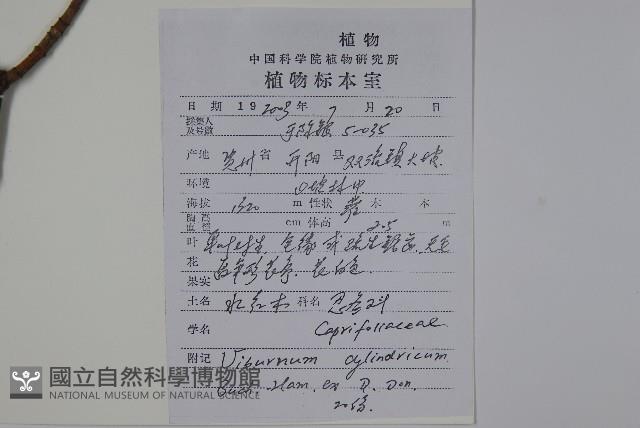 植物
中国科学院植物研究所
植物标本室
日期 19 2003 年 7 月 20 日
採集人
及号数 5-035
产地 贵州省 开阳县 双流镇大坡
环境 山坡林中
海拔 1320 m 性状 灌木 本
胸高
直径 cm 体高 2.5 m
叶 单叶对生 全缘或疏生锯齿, 无毛
花
果实 花序, 花白色
土名 水红木 科名 忍冬科
学名 Caprifoliaceae
附记 Viburnum cylindricum
Buch.-Ham. ex D. Don.
20份
國立自然科學博物館
NATIONAL MUSEUM OF NATURAL SCIENCE